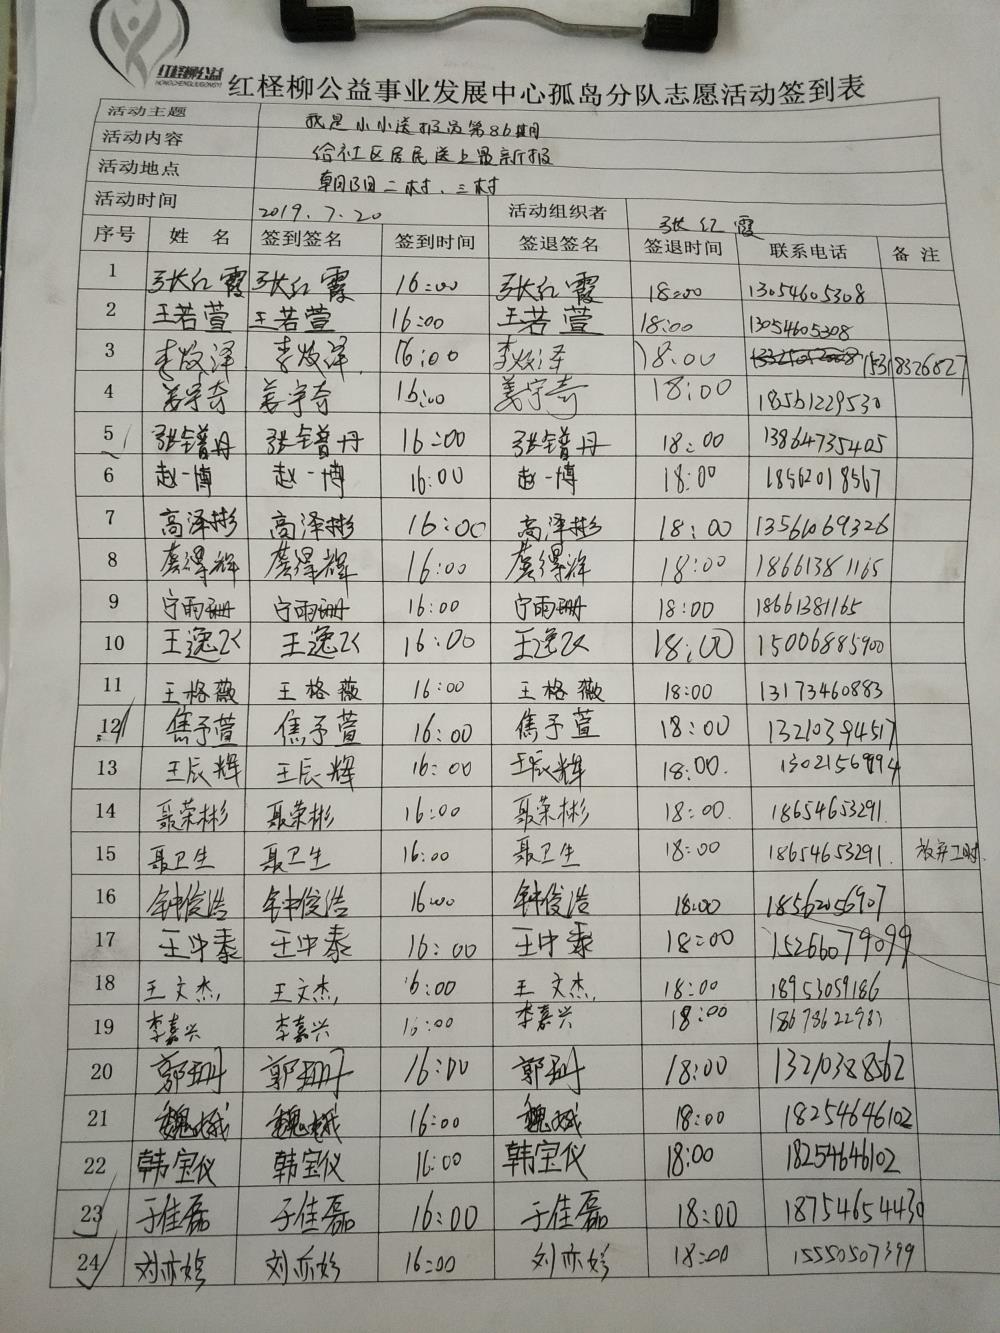 红柽柳公益
HONGCHENGLIUGONGYI
红柽柳公益事业发展中心孤岛分队志愿活动签到表
活动主题 我是小小送报员第86期
活动内容 给社区居民送上最新报
活动地点 朝阳二村、三村
活动时间 2019.7.20 活动组织者 张红霞
序号 姓名 签到签名 签到时间 签退签名 签退时间 联系电话 备注
1 张红霞 张红霞 16:00 张红霞 18:00 13054605308
2 王若萱 王若萱 16:00 王若萱 18:00 13054605308
3 16:00 18:00 15318326827
4 姜宇奇 姜宇奇 16:00 姜宇奇 18:00 18561229530
5 16:00 18:00 13864735405
6 赵一博 赵一博 16:00 赵一博 18:00 18562018567
7 高泽彬 高泽彬 16:00 高泽彬 18:00 13561069326
8 龚得辉 龚得辉 16:00 龚得辉 18:00 18661381165
9 宁雨珊 宁雨珊 16:00 宁雨珊 18:00 18661381165
10 王逸飞 王逸飞 16:00 王逸飞 18:00 15006885900
11 王格薇 王格薇 16:00 王格薇 18:00 13173460883
12 焦予萱 焦予萱 16:00 焦予萱 18:00 13210394517
13 王辰辉 王辰辉 16:00 王辰辉 18:00.
14 聂荣彬 聂荣彬 16:00 聂荣彬 18:00. 18654653291.
15 聂卫生 聂卫生 16:00 聂卫生 18:00 18654653291. 放弃工时
16 钟俊浩 钟俊浩 16:00 钟俊浩 18:00 18562056907
17 王中泰 王中泰 16:00 王中泰 18:00 15266079099
18 王文杰. 王文杰. 16:00 王文杰. 18:00 18953059186
19 李嘉兴 李嘉兴 16:00 李嘉兴 18:00
20 郭珊 郭珊 16:00 郭珊 18:00 13210388562
21 16:00 18:00 18254646102
22 韩宝仪 韩宝仪 16:00 韩宝仪 18:00 18254646102
23 于佳磊 于佳磊 16:00 于佳磊 18:00 18754654430
24 16:00 18:00 15550507399